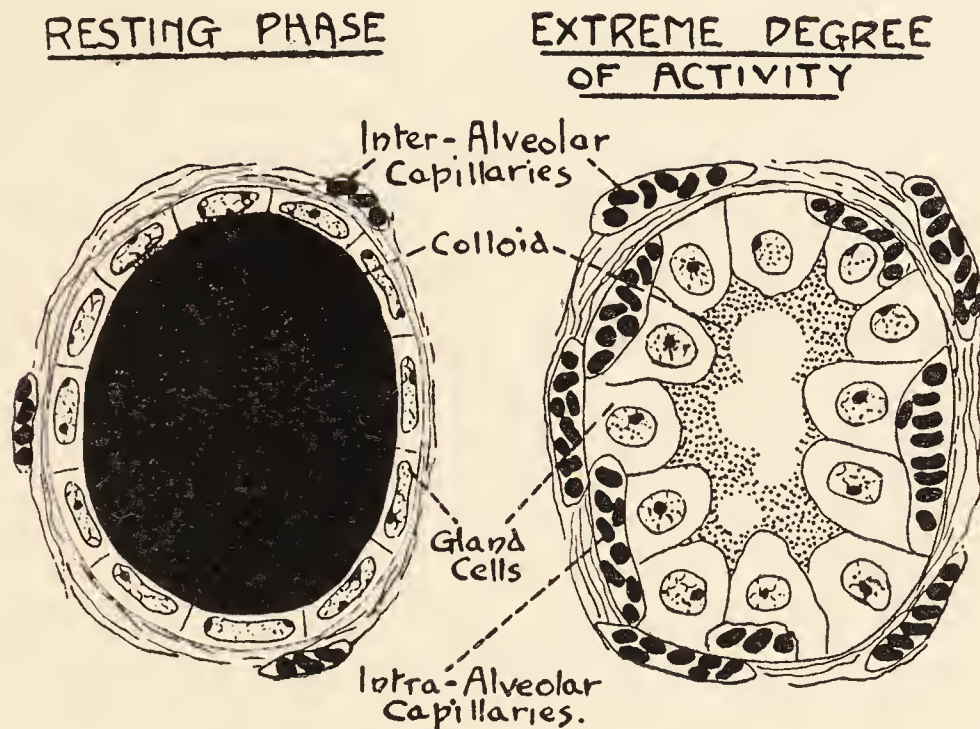 RESTING PHASE
EXTREME DEGREE
OF ACTIVITY
Inter-Alveolar
Capillaries
Colloid
Gland
Cells
Intra-Alveolar
Capillaries.